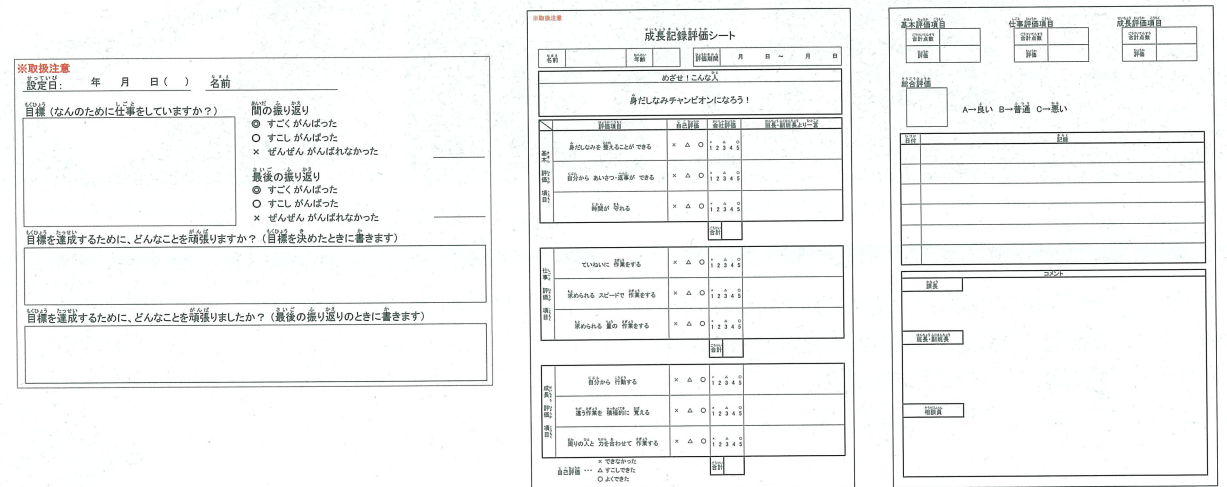 ※取扱注意
設定日: 年 月 日( ) 名前
目標(なんのために仕事をしていますか?)
間の振り返り
◎ すごくがんばった
○ すこしがんばった
× ぜんぜんがんばれなかった
最後の振り返り
◎ すごくがんばった
○ すこしがんばった
× ぜんぜんがんばれなかった
目標を達成するために、どんなことを頑張りますか?(目標を決めたときに書きます)
目標を達成するために、どんなことを頑張りましたか?(最後の振り返りのときに書きます)
※取扱注意
成長記録評価シート
名前 年齢 評価期間 月 日 ~ 月 日
めざせ!こんな人
身だしなみチャンピオンになろう!
評価項目 自己評価 会社評価 班長・副班長より一言
基本評価項目
身だしなみを 整えることが できる × △ ○ 1 2 3 4 5
自分から あいさつ・返事が できる × △ ○ 1 2 3 4 5
時間が 守れる × △ ○ 1 2 3 4 5
合計
仕事評価項目
ていねいに 作業をする × △ ○ 1 2 3 4 5
求められる スピードで 作業をする × △ ○ 1 2 3 4 5
求められる 量の 作業をする × △ ○ 1 2 3 4 5
合計
成長評価項目
自分から 行動する × △ ○ 1 2 3 4 5
違う作業を 積極的に 覚える × △ ○ 1 2 3 4 5
周りの人と 力を合わせて 作業する × △ ○ 1 2 3 4 5
合計
自己評価 … × できなかった
△ すこしできた
○ よくできた
基本評価項目 仕事評価項目 成長評価項目
合計点数 合計点数 合計点数
評価 評価 評価
総合評価
A→良い B→普通 C→悪い
日付 記録
コメント
課長
班長・副班長
相談員